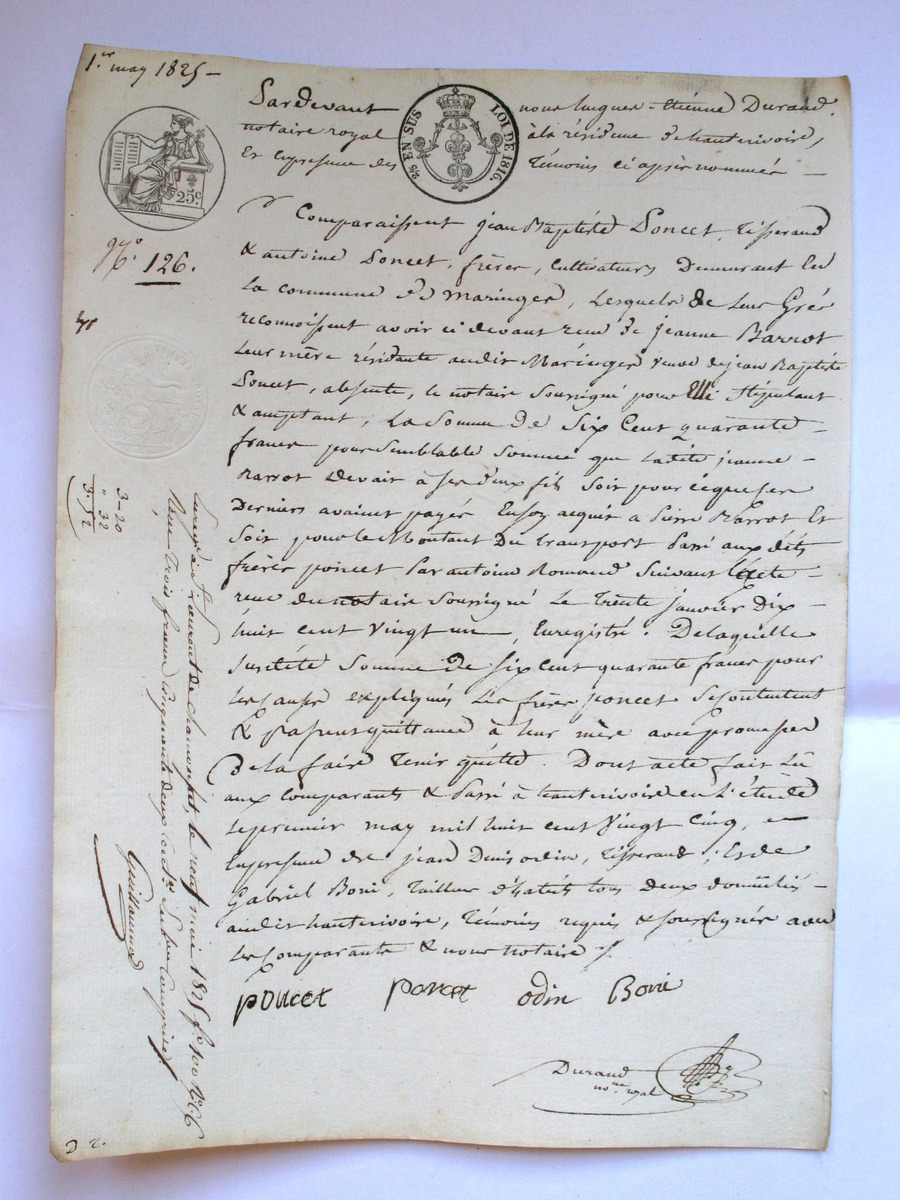 1.er may 1825 –
Pardevant nous hugues-Etienne Durand,
notaire royal à la résidence de hauterivoire,
Et en présence des témoins ci après nommés –
2/10 EN SUS LOI DE 1816.
25c.
N.o 126.
Comparaissent jean Baptiste Poncet, tisserand
& antoine Poncet, frères, cultivateurs Demurant En
La commune de Maringes, Lesquels de leur Gré
reconnoissent avoir ci devant reçu de jeanne Barrot
Leur mère résidante audit Maringes veuve de jean Baptiste
Poncet, absente, le notaire soussigné pour Elle stipulant
& acceptant, La Somme de Six Cent quarante
francs pour semblable somme que ladite jeanne
Barrot Devait à ses deux fils Soit pour ce que ses
Derniers avaient payés En son acquit à Pierre Barrot Et
Soit pour le Montant Du transport Passé aux dits
frères poncet Par antoine Romand Suivant acte
reçu du notaire Soussigné Le Trente janvier Dix
huit cent Vingt un, Enregistré. De laquelle
susdite Somme De Six Cent quarante francs pour
les causes expliquées Les frères poncet Se contentent
& passent quittance à leur mère avec promesse
De la faire tenir quitte. Dont acte fait Lû
aux comparants & Passé à hauterivoire en L'étude
Le premier may mil huit cent Vingt Cinq, en
En présence de jean Denis odin, tisserand, Et de
Gabriel Boni, tailleur d'habits tous deux domiciliés
audit hauterivoire, témoins requis & soussignés avec
Les Comparants & nous notaire
poncet poncet odin Boni
Durand
no.re royal
3-20
" 32
3-52
Enregé à St Laurent de chamousset, le neuf mai 1825 f.o 100 N.o C.6
Reçu trois francs cinquante deux cent.es Subon compris.
Guillaumod
D r.